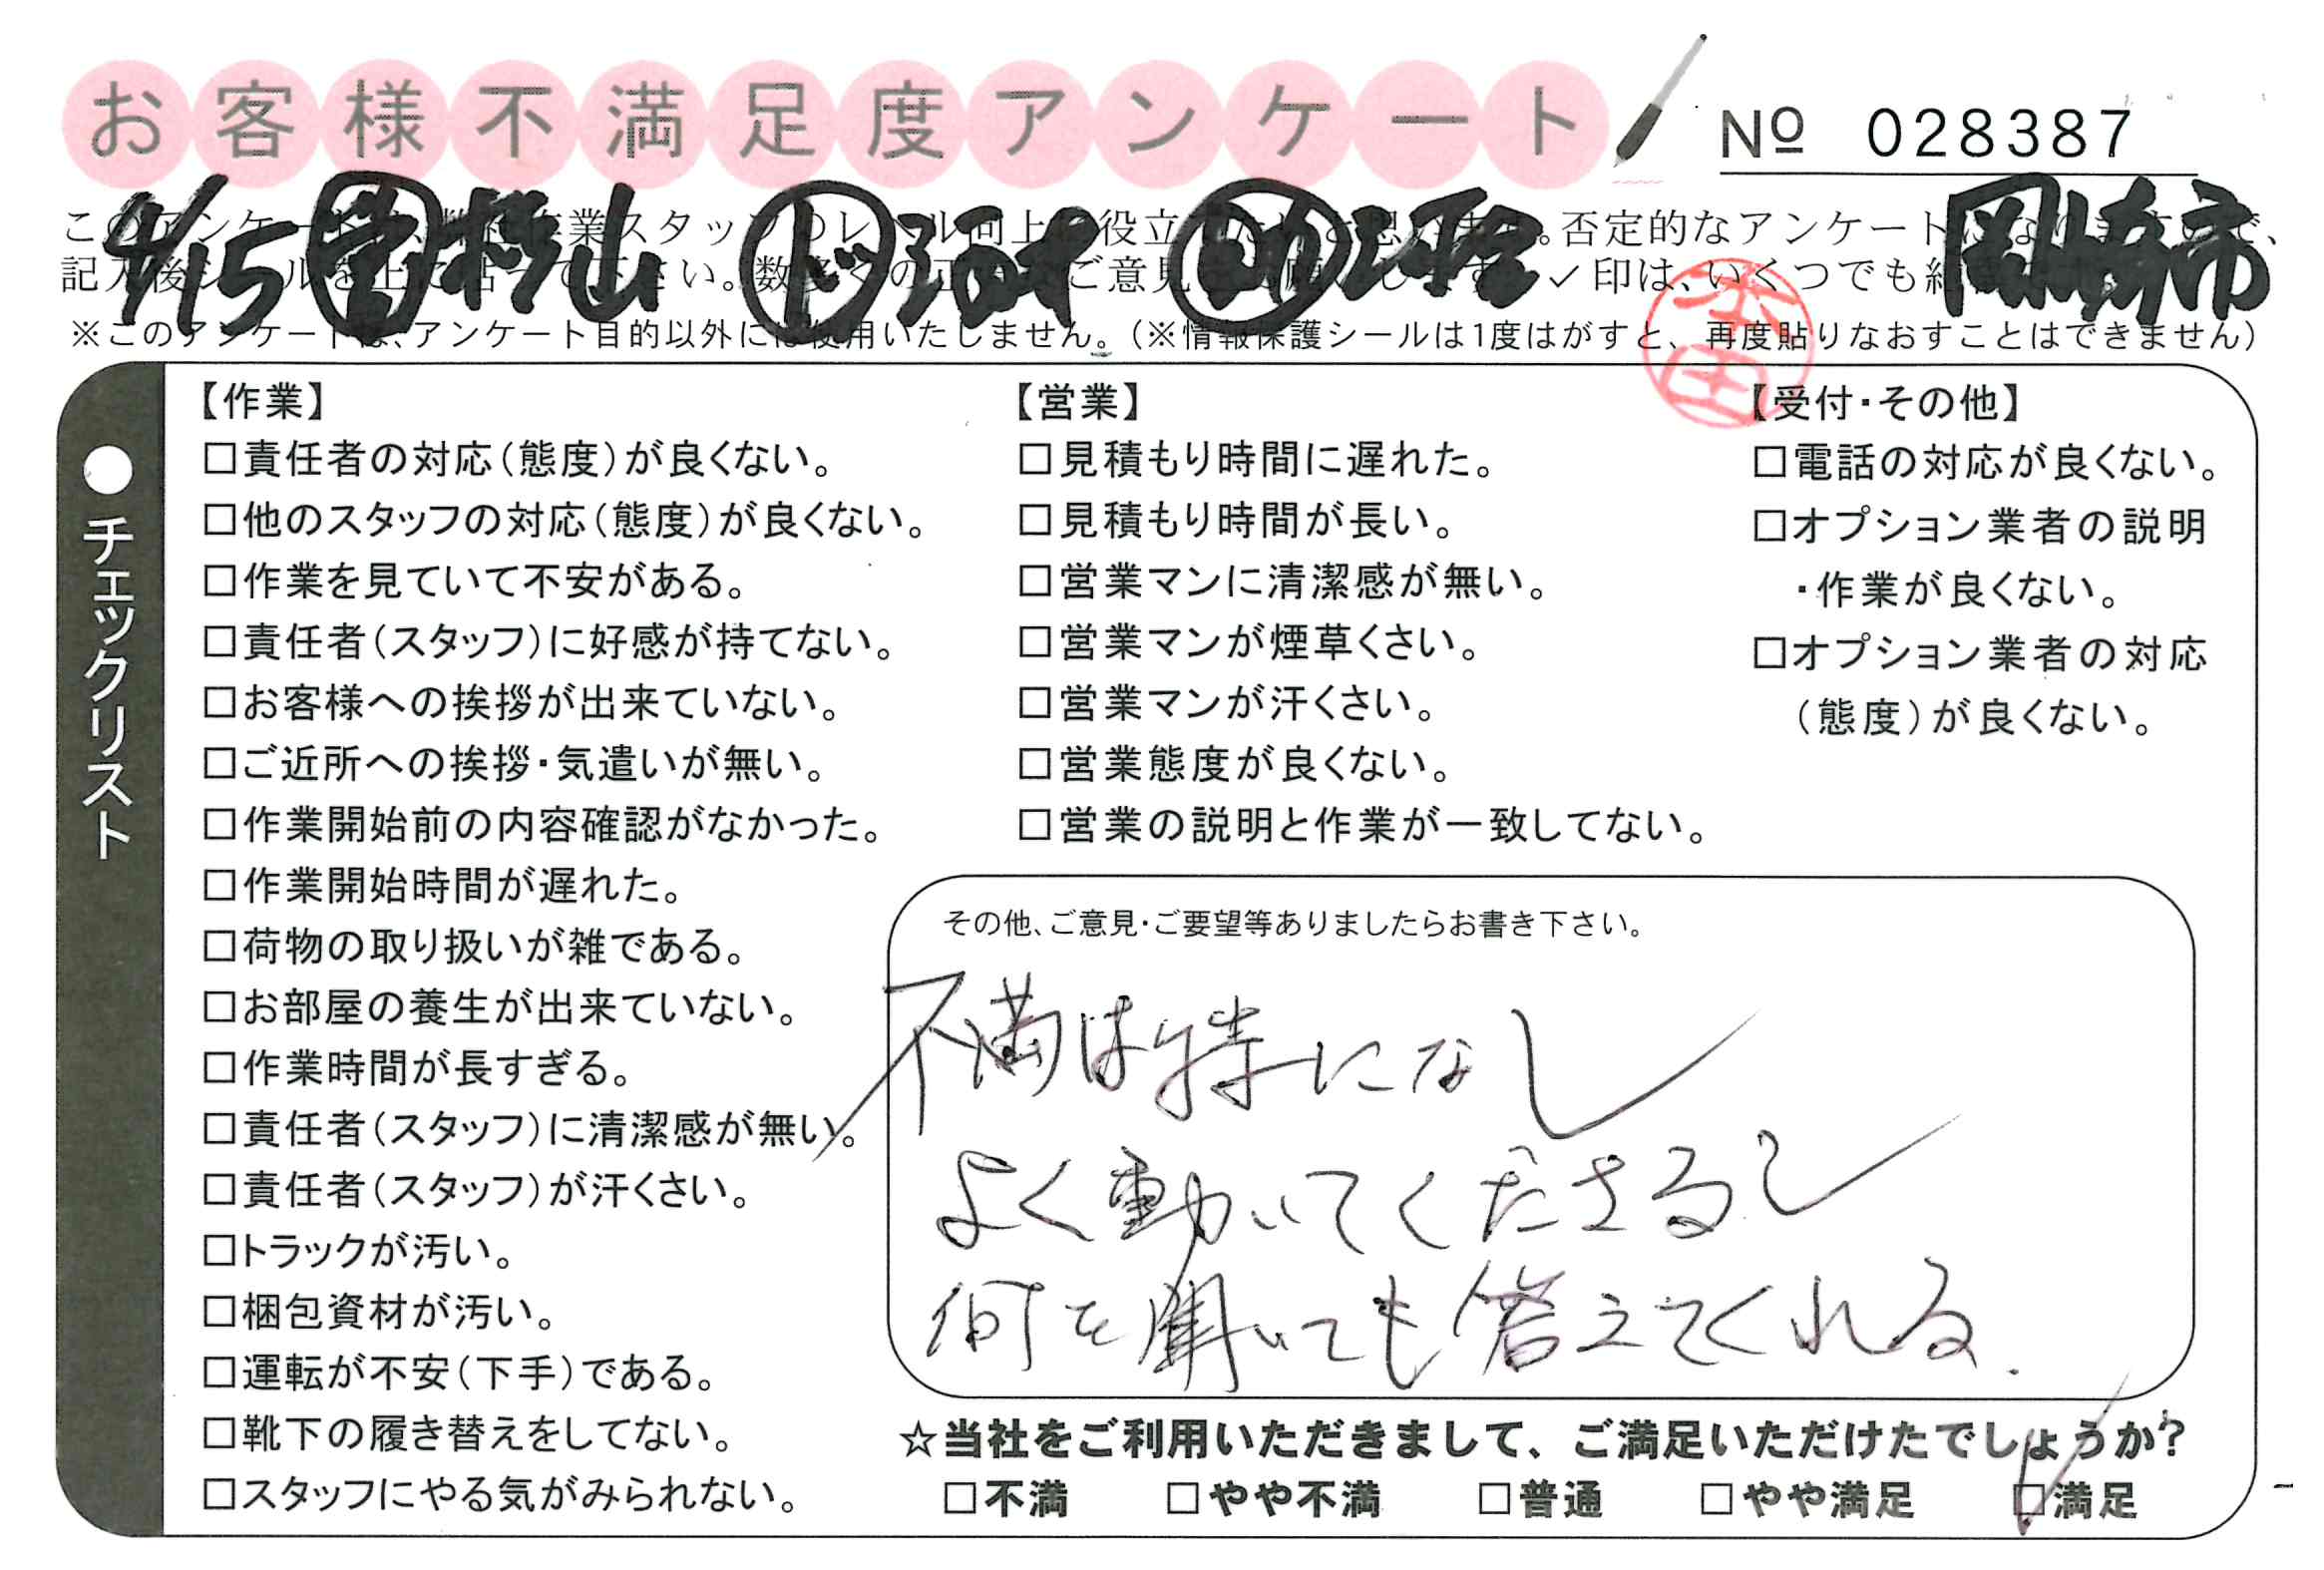 お客様不満足度アンケート
№ 028387
4/15 営 杉山 トッ 助 岡崎市
※このアンケートは、アンケート目的以外には使用いたしません。(※情報保護シールは1度はがすと、再度貼りなおすことはできません)
本田
●チェックリスト
【作業】
□責任者の対応(態度)が良くない。
□他のスタッフの対応(態度)が良くない。
□作業を見ていて不安がある。
□責任者(スタッフ)に好感が持てない。
□お客様への挨拶が出来ていない。
□ご近所への挨拶・気遣いが無い。
□作業開始前の内容確認がなかった。
□作業開始時間が遅れた。
□荷物の取り扱いが雑である。
□お部屋の養生が出来ていない。
□作業時間が長すぎる。
□責任者(スタッフ)に清潔感が無い。
□責任者(スタッフ)が汗くさい。
□トラックが汚い。
□梱包資材が汚い。
□運転が不安(下手)である。
□靴下の履き替えをしてない。
□スタッフにやる気がみられない。
【営業】
□見積もり時間に遅れた。
□見積もり時間が長い。
□営業マンに清潔感が無い。
□営業マンが煙草くさい。
□営業マンが汗くさい。
□営業態度が良くない。
□営業の説明と作業が一致してない。
【受付・その他】
□電話の対応が良くない。
□オプション業者の説明
・作業が良くない。
□オプション業者の対応
(態度)が良くない。
その他、ご意見・ご要望等ありましたらお書き下さい。
不満は特になし
よく動いてくださるし
何を聞いても答えてくれる.
☆当社をご利用いただきまして、ご満足いただけたでしょうか?
□不満 □やや不満 □普通 □やや満足 ☑満足